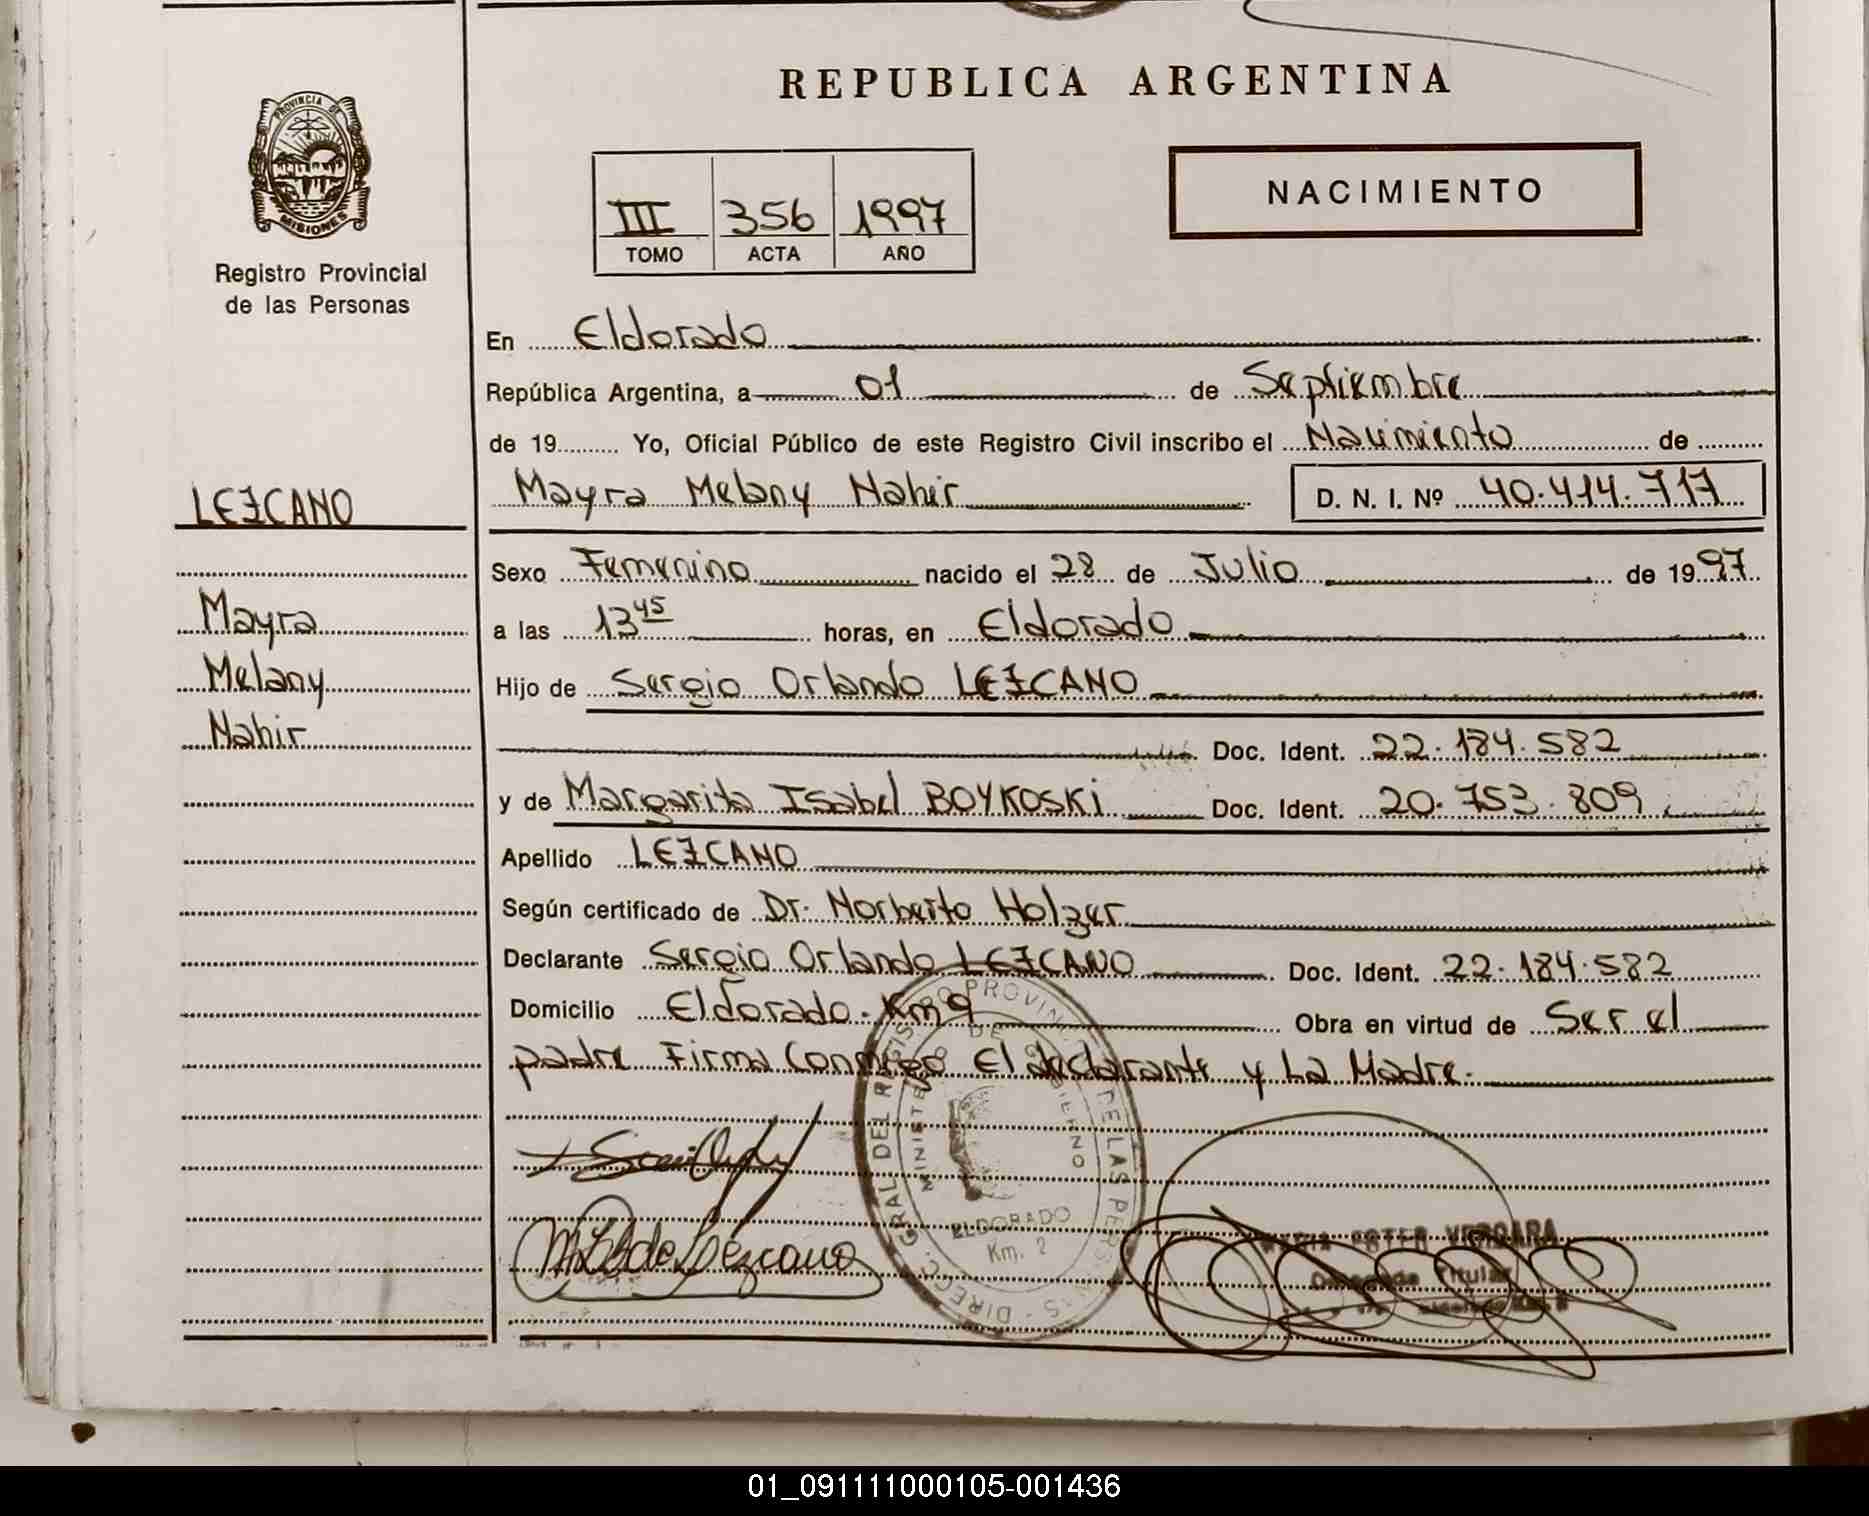 REPUBLICA ARGENTINA
PROVINCIA DE
MISIONES
Registro Provincial
de las Personas
III 356 1997
TOMO ACTA AÑO
NACIMIENTO
En Eldorado
República Argentina, a 01 de Septiembre
de 19 Yo, Oficial Público de este Registro Civil inscribo el Nacimiento de
Mayra Melany Nahir D. N. I. Nº 40.414.717
LEZCANO
Mayra
Melany
Nahir
Sexo Femenino nacido el 28 de Julio de 1997
a las 13 45 horas, en Eldorado
Hijo de Sergio Orlando LEZCANO
Doc. Ident. 22.184.582
y de Margarita Isabel BOYKOSKI Doc. Ident. 20.753.809
Apellido LEZCANO
Según certificado de Dr. Norberto Holzer
Declarante Sergio Orlando LEZCANO Doc. Ident. 22.184.582
Domicilio Eldorado. Km 9 Obra en virtud de Ser el
padre Firma Conmigo El declarante y La Madre.
DIREC. GRAL DEL REGISTRO PROVIN. DE LAS PERSONAS
MINISTERIO DE GOBIERNO
ELDORADO
Km. 2
de Lezcano
VERGARA
Titular
01_091111000105-001436